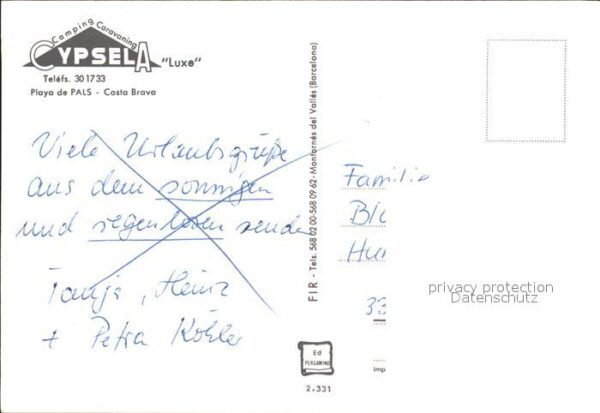 Camping Caravaning
CYPSELA "Luxe"
Teléfs. 301733
Playa de PALS - Costa Brava
Viele Urlaubsgrüße
aus dem sonnigen
und regenlosen senden
Tanja, Heinz
+ Petra Köhler
FIR - Tels. 568 02 00-568 09 62 - Montornés del Vallés (Barcelona)
Ed
PERGAMINO
2.331
Familie
Blu
Hun
33
Imp
privacy protection
Datenschutz